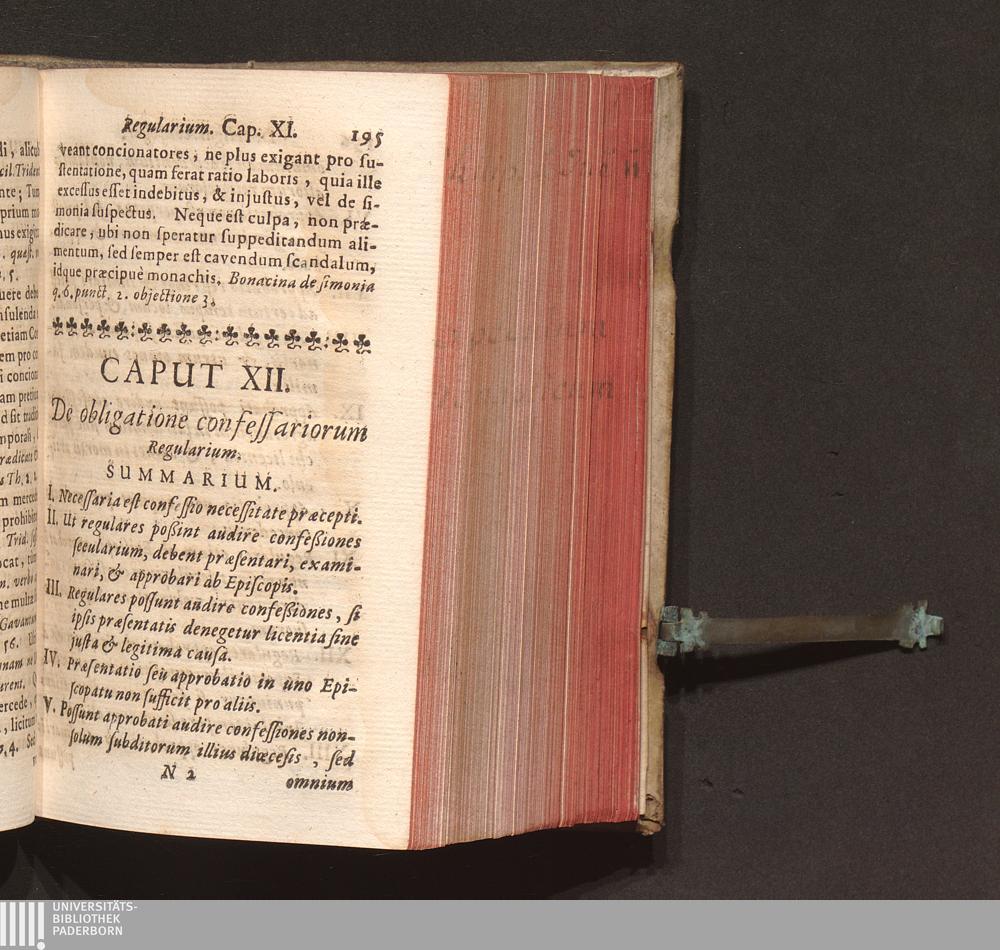 Regularium. Cap. XI. 195
veant concionatores, ne plus exigant pro su-
stentatione, quam ferat ratio laboris, quia ille
excessus esset indebitus, & injustus, vel de si-
monia suspectus. Neque est culpa, non præ-
dicare, ubi non speratur suppeditandum ali-
mentum, sed semper est cavendum scandalum,
idque præcipuè monachis. Bonacina de simonia
q. 6. punct. 2. objectione 3.
CAPUT XII.
De obligatione confessariorum
Regularium.
SUMMARIUM.
I. Necessaria est confessio necessitate præcepti.
II. Ut regulares poßint audire confeßiones
secularium, debent præsentari, exami-
nari, & approbari ab Episcopis.
III. Regulares possunt audire confeßiones, si
ipsis præsentatis denegetur licentia sine
justa & legitima causa.
IV. Præsentatio seu approbatio in uno Epi-
scopatu non sufficit pro aliis.
V. Possunt approbati audire confessiones non-
solum subditorum illius diœcesis, sed
N 2 omnium
UNIVERSITÄTS-
BIBLIOTHEK
PADERBORN